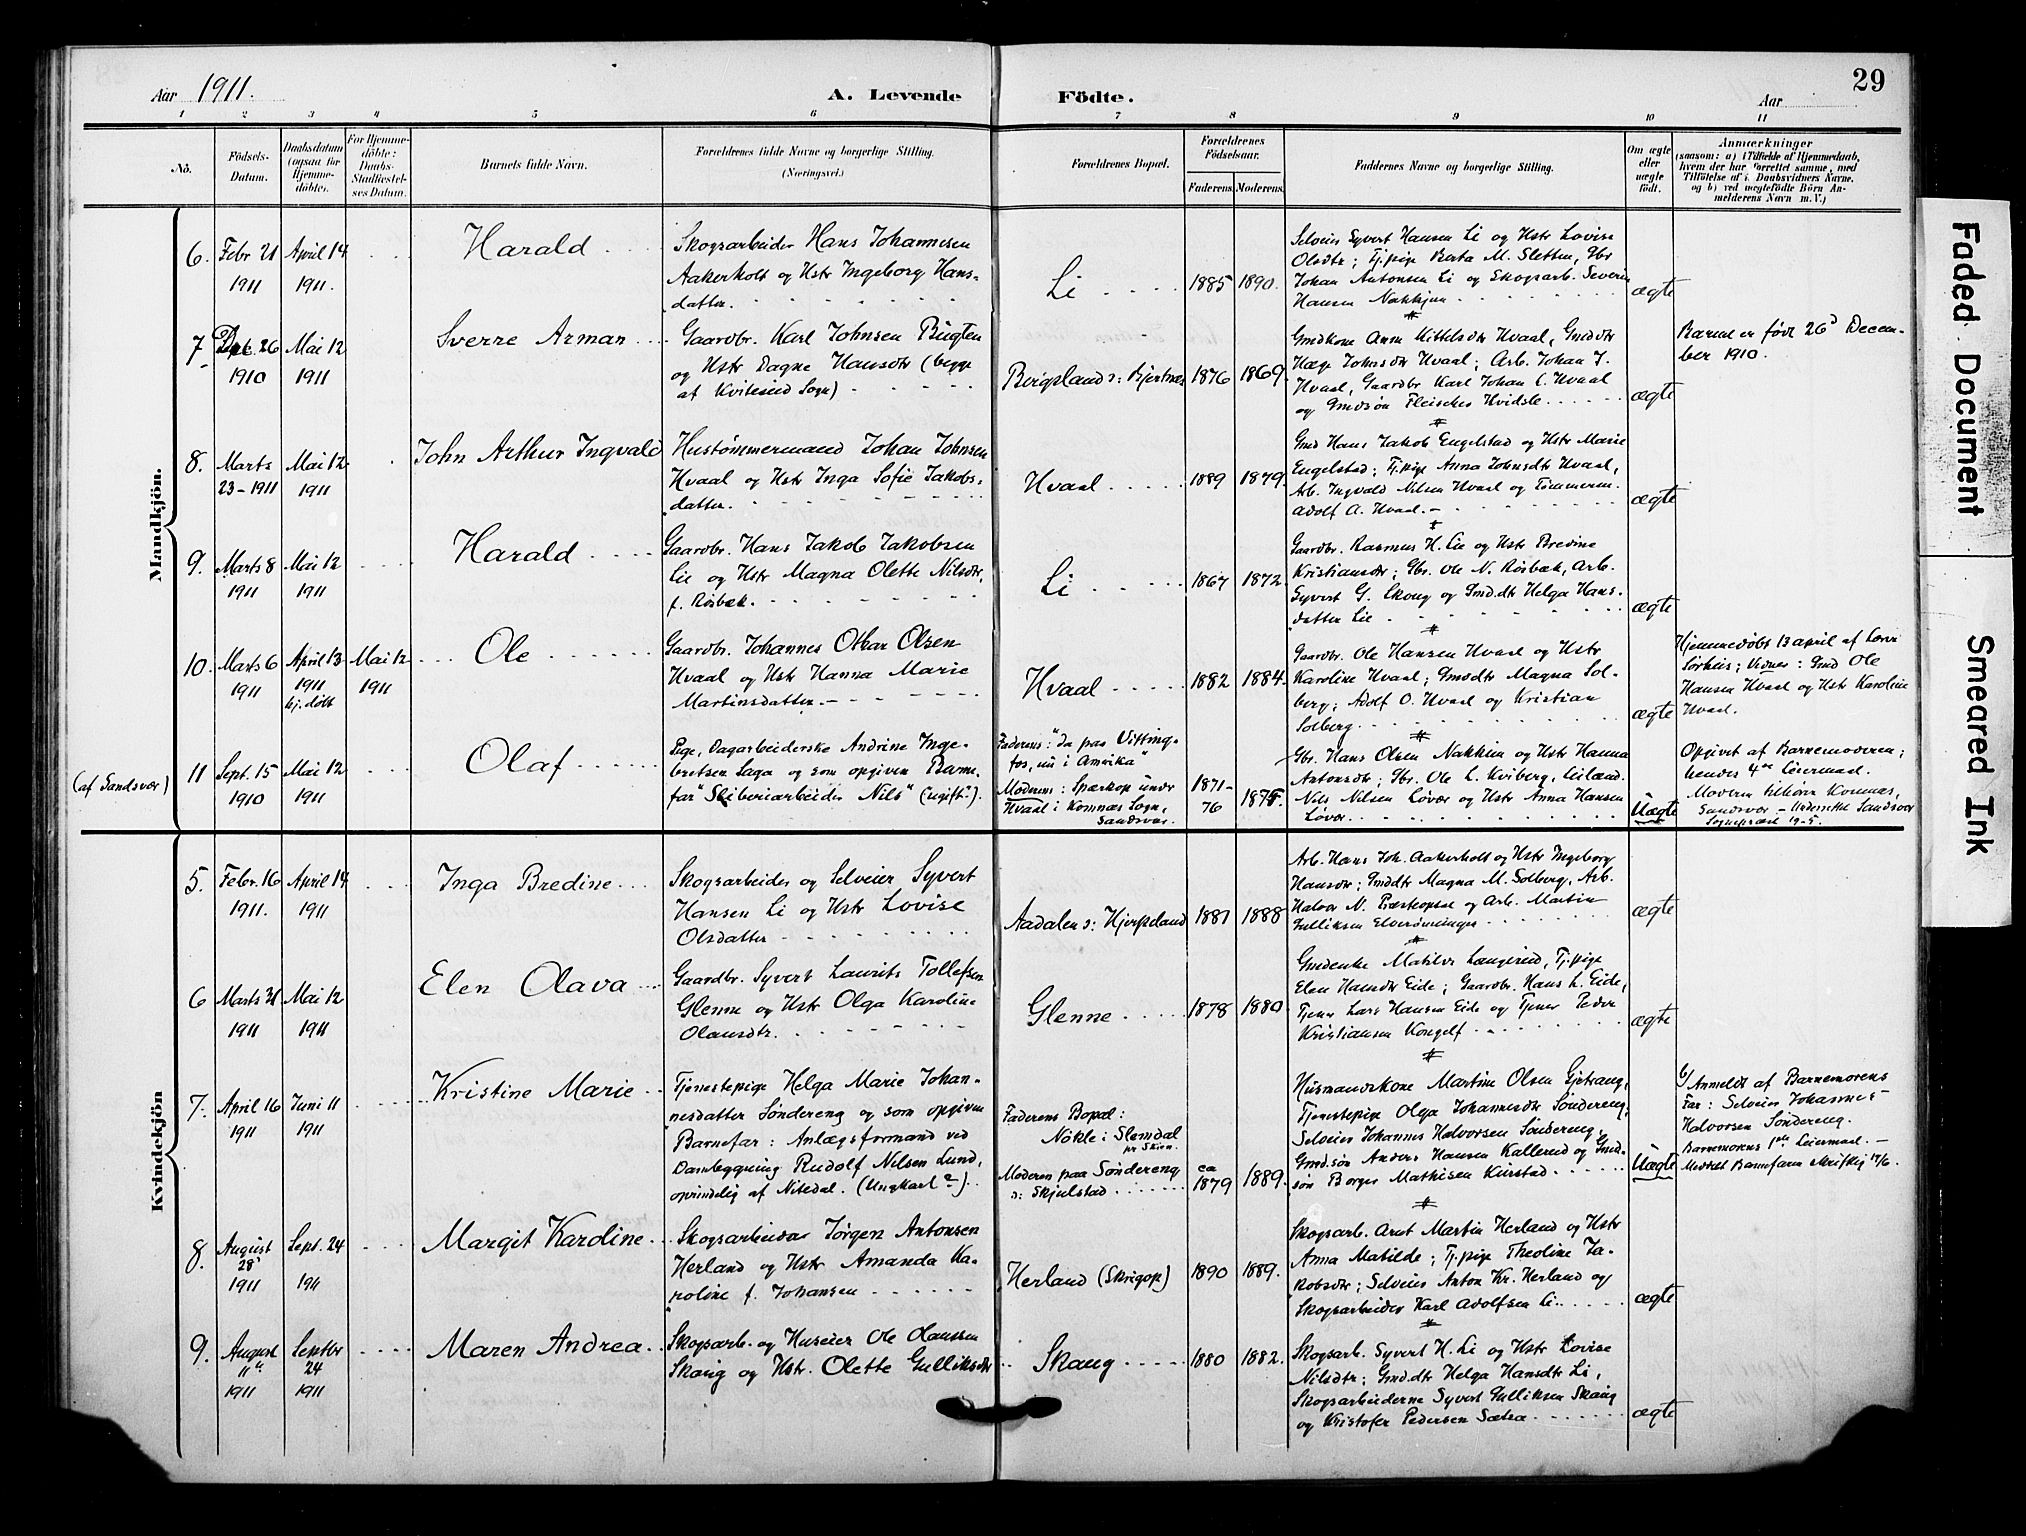 Aar 1911.
A. Levende
Födte.
Aar
29
1 2 3 4 5 6 7 8 9 10 11
No.
Födsels-
Datum.
Daabsdatum
(ogsaa for
Hjemme-
döbte).
For Hjemme-
döbte:
Daabs-
Stadfæstel-
ses Datum.
Barnets fulde Navn.
Forældrenes fulde Navne og borgerlige Stilling.
(Næringsvei.)
Forældrenes Bopæl.
Forældrenes
Födselsaar.
Faderens. Moderens.
Faddernes Navne og borgerlige Stilling.
Om ægte
eller
uægte
födt.
Anmærkninger
(saasom: a) i Tilfælde af Hjemmedaab,
hvem der har forrettet samme, med
Tilföielse af i. Daabsvidners Navne.
og b) ved uægtefödte Börn An-
melderens Navn m.V.)
Mandkjön.
6. Febr 21
1911
April 14
1911.
Harald
Skogsarbeider Hans Johannesen
Aakerholt og Hstr Ingeborg Hans-
datter.
Li
1885 1890.
Selveier Syvert Hansen Li og Hstr Lovise
Olsdtr; Tj.pige Berta M. Sletten, Gbr
Johan Antonsen Li og Skogsarb. Severin
Hansen Nakkjem
ægte
7. Dec. 26
1910
Mai 12
1911
Sverre Arman
Gaardbr. Karl Johnsen Bugten
og Hstr Dagne Hansdtr (begge
af Kviteseid Sogn)
Bergsland s: Bjertnæs
1876 1869.
Gmdkone Anne Kittelsdtr Hvaal, Gmddtr
Hæge Johnsdtr Hvaal; Arb. Johan J.
Hvaal, Gaardbr Karl Johan C. Hvaal
og Gmdsøn Fleischer Hvidsle
ægte
Barnet er født 26d Decem-
ber 1910.
8. Marts
23-1911
Mai 12
1911
John Arthur Ingvald
Hustømmermand Johan Johnsen
Hvaal og Hstr Inga Sofie Jakobs-
datter.
Hvaal
1889 1879.
Gmd Hans Jakob Engelstad og Hstr Marie
Engelstad; Tj.pige Anna Johnsdtr Hvaal,
Arb. Ingvald Nilsen Hvaal og Tømmerm.
Adolf A. Hvaal.
ægte
9. Marts 8
1911
Mai 12
1911
Harald
Gaardbr. Hans Jakob Jakobsen
Lie og Hstr Magna Olette Nilsdtr,
f. Rösbæk.
Li
1867 1872.
Gaardbr. Rasmus H. Lie og Hstr Bredine
Kristiansdtr; Gbr. Ole N. Rösbæk, Arb.
Syvert G. Skoug og Gmd.dtr Helga Hans-
datter Lie
ægte
10. Marts 6
1911
April 13
1911
hj.døbt
Mai 12
1911
Ole
Gaardbr. Johannes Oskar Olsen
Hvaal og Hstr Hanna Marie
Martinsdatter
Hvaal
1882 1884.
Gaardbr. Ole Hansen Hvaal og Hstr
Karoline Hvaal; Gmddtr Magna Sol-
berg; Adolf O. Hvaal og Kristian
Solberg
ægte
Hjemmedøbt 13 april af Lærer
Sørhus; Vidner: Gmd Ole
Hansen Hvaal og Hstr Karoline
Hvaal.
(af Sandsvær)
11 Sept. 15
1910
Mai 12
1911
Olaf
Pige, Dagarbeiderske Andrine Inge-
bretsen Saga og som opgiven Barne-
far "Sliberiarbeider Nils" (ugift).
Faderens: "da paa Vitting-
fos, nu i Amerika"
Moderens: Spærkop under
Hvaal i Komnæs Sogn,
Sandsvær.
1871-
76
1875.
Gbr. Hans Olsen Nakkim og Hstr Hanna
Antonsdtr; Gbr. Ole L. Kviberg, Leilænd.
Nils Nilsen Løvær og Hstr Anna Hansen
Løvær
Uægte
Opgivet af Barnemoderen;
hendes 4de Leiermaal.
Moderen tilhører Komnæs,
Sandsvær - Underrettet Sandsvær
Sogneprest 19-5.
Kvindekjön
5. Febr. 16
1911.
April 14
1911
Inga Bredine
Skogsarbeider og Selveier Syvert
Hansen Li og Hstr Lovise
Olsdatter
Aadalen s: Hjerpeland
1881 1888
Arb. Hans Joh. Aakerholt og Hstr Ingeborg
Hansdtr; Gmddtr Magna M. Solberg, Arb.
Halvor N. Præsteopsal og Arb. Martin
Gulliksen
ægte
6 Marts 31
1911
Mai 12
1911
Elen Olava
Gaardbr. Syvert Laurits Tollefsen
Glenne og Hstr Olga Karoline
Olausdtr.
Glenne
1878 1880
Gmdenke Matilde Langerud, Tj.pige
Elen Hansdtr Eide; Gaardbr. Hans L. Eide,
Tjener Lars Hansen Eide og Tjener Peder
Kristiansen Kongelf
ægte
7. April 16
1911
Juni 11
1911
Kristine Marie
Tjenestepige Helga Marie Johan-
nesdatter Søndereng og som opgiven
Barnefar: Anlægsformand ved
Dambygning Rudolf Nilsen Lund,
oprindelig af Nitedal. (Ungkarl?)
Faderens Bopæl:
Nökle i Slemdal
pr Skien
Moderen paa Søndereng
s: Skjulstad
ca
1879
1889.
Husmandskone Martine Olsen Gjetrang,
Tjenestepige Olga Johannesdtr Søndereng,
Selveier Johannes Halvorsen Søndereng,
Gmd.søn Anders Hansen Kallerud og Gmd-
søn Borger Mathisen Kurstad
Uægte
b/ Anmeldt af Barnemorens
Far: Selveier Johannes
Halvorsen Søndereng.
Barnemorens 1ste Leiermaal. -
Meddelt Barnefaren skriftlig 17/6.
8. August
28
1911
Sept. 24
1911
Margit Karoline
Skogsarbeider Jørgen Antonsen
Herland og Hstr Amanda Ka-
roline f. Johansen
Herland (Skrigop)
1890 1889.
Skogsarb. Arnt Martin Herland og Hstr
Anna Matilde; Tj.pige Theoline Ja-
kobsdtr; Selveier Anton Kr. Herland og
Skogsarbeider Karl Adolfsen Li.
ægte
9. August
11te
1911
Septbr
24
1911
Maren Andrea
Skogsarb. og Huseier Ole Olaussen
Skoug og Hstr. Olette Gulliksdtr
Skaug
1880 1882.
Skogsarb. Syvert H. Li og Hstr Lovise
Nilsdtr; Gmd.dtr Helga Hansdtr Li,
Skogsarbeiderne Syvert Gulliksen Skaug
og Kristofer Pedersen Sætra
ægte
Faded Document
Smeared Ink